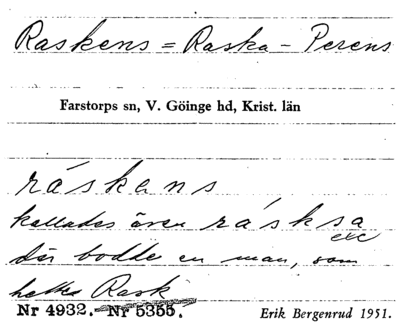 Raskens = Raska - Perens
Farstorps sn, V. Göinge hd, Krist. län
ráskens
kallades även rásksa
där bodde en man, som
hette Rask
Nr 4932. Nr 5355.
Erik Bergenrud 1951.